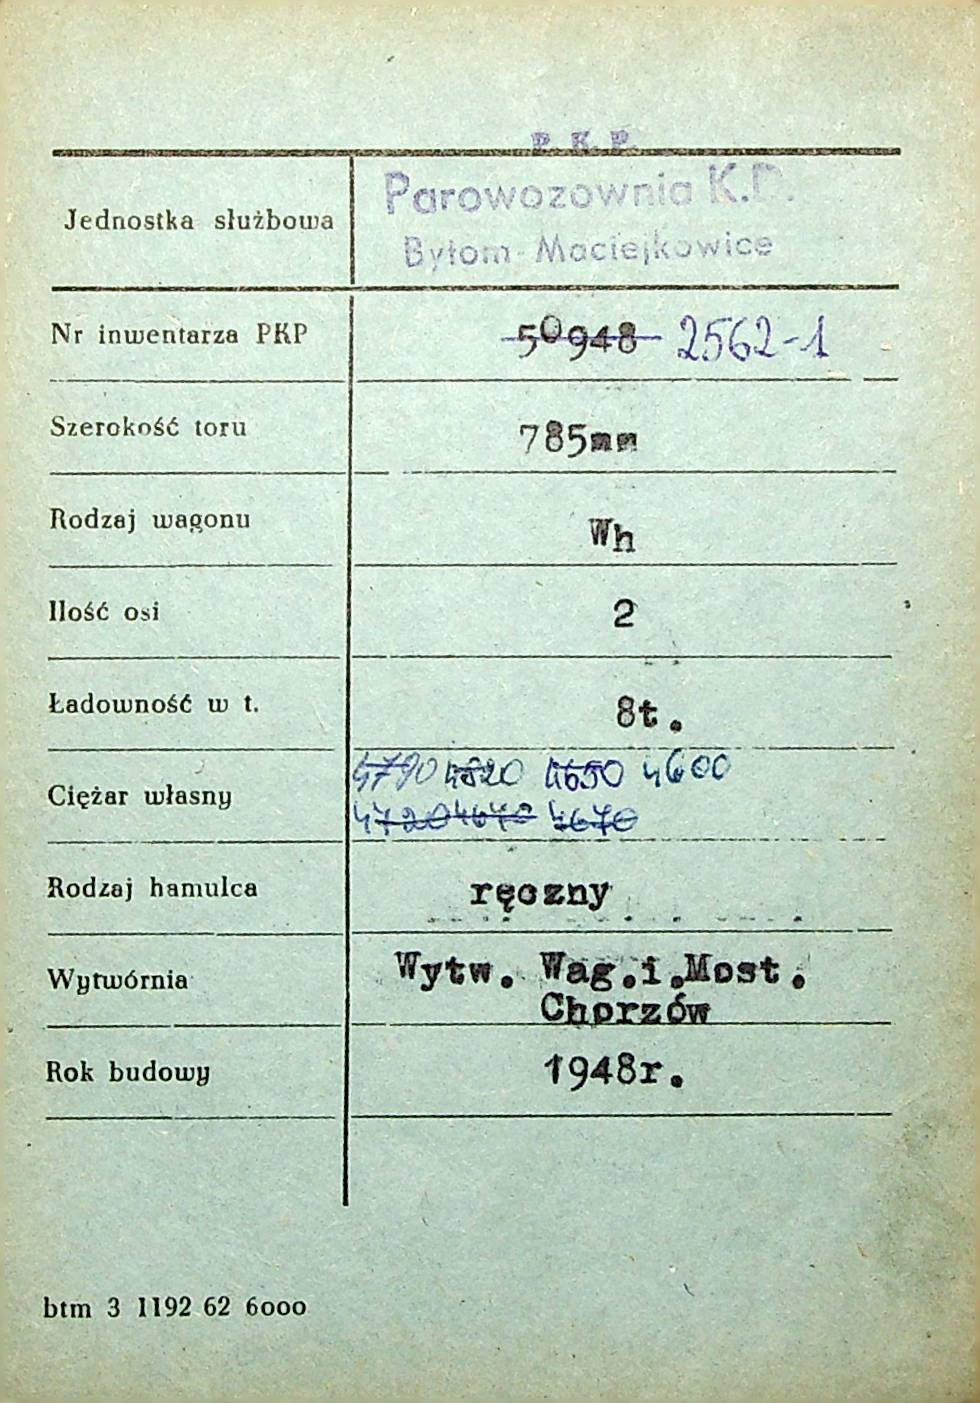 P. K. P.
Parowozownia K.D.
Jednostka służbowa
Bytom-Maciejkowice
Nr inwentarza PKP 50948 2562-1
Szerokość toru 785mm
Rodzaj wagonu Wh
Ilość osi 2
Ładowność w t. 8t.
4790 4820 4650 4600
Ciężar własny
4720 4640 4670
Rodzaj hamulca ręczny
Wytwórnia Wytw. Wag.i.Most.
Chorzów
Rok budowy 1948r.
btm 3 1192 62 6000